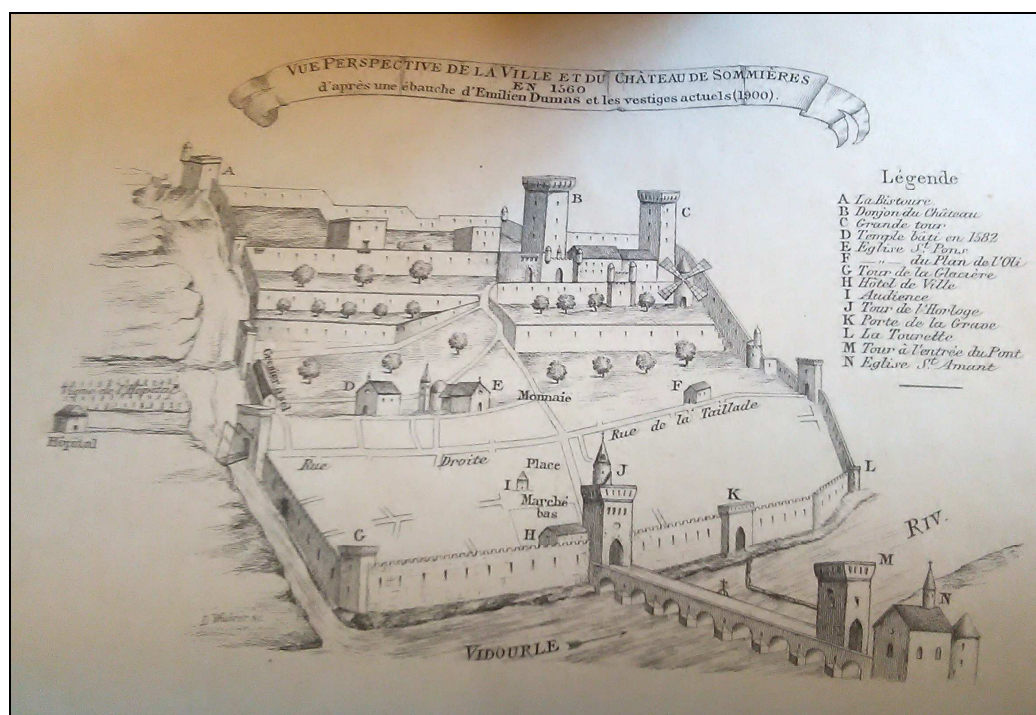 VUE PERSPECTIVE DE LA VILLE ET DU CHÂTEAU DE SOMMIÈRES
EN 1560
d'après une ébauche d'Emilien Dumas et les vestiges actuels (1900).
Légende
A La Bistoure
B Donjon du Château
C Grande tour
D Temple bâti en 1582
E Eglise St. Pons
F —„— du Plan de l'Oli
G Tour de la Glacière
H Hôtel de Ville
I Audience
J Tour de l'Horloge
K Porte de la Grave
L La Tourette
M Tour à l'entrée du Pont
N Eglise St. Amant
A
B
C
Grenier à sel
D
E
Monnaie
F
Hôpital
Rue Droite
Rue de la Taillade
Place
I
Marché
bas
J
K
L
G
H
RIV.
M
N
VIDOURLE